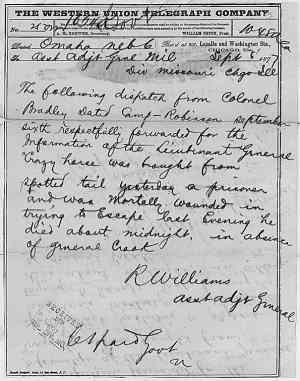 THE WESTERN UNION TELEGRAPH COMPANY.
WILLIAM ORTON, Prest.
Omaha Neb 6
Rec'd at cor. Lasalle and Washington Sts.,
CHICAGO, ILL.
To Asst Adjt Gnrl Mil Sept 6 1877
Div missouri Chgo Ill
The following dispatch from Colonel
Bradley Dated Camp Robinson september
sixth respectfully forwarded for the
Information of the Lieutenant General
Crazy horse was bought from
spotted tail yesterday a prisoner
and was Mortally wounded in
trying to Escape last Evening he
died about midnight. in absence
of gnrneral Crook
R Williams
asst adjt General
pard Govt